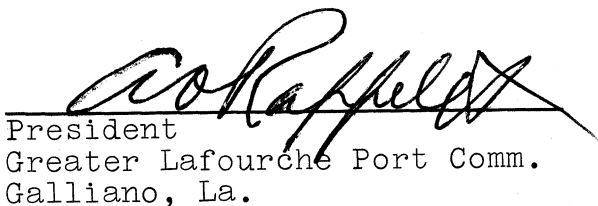 AO Rappelet
President
Greater Lafourche Port Comm.
Galliano, La.